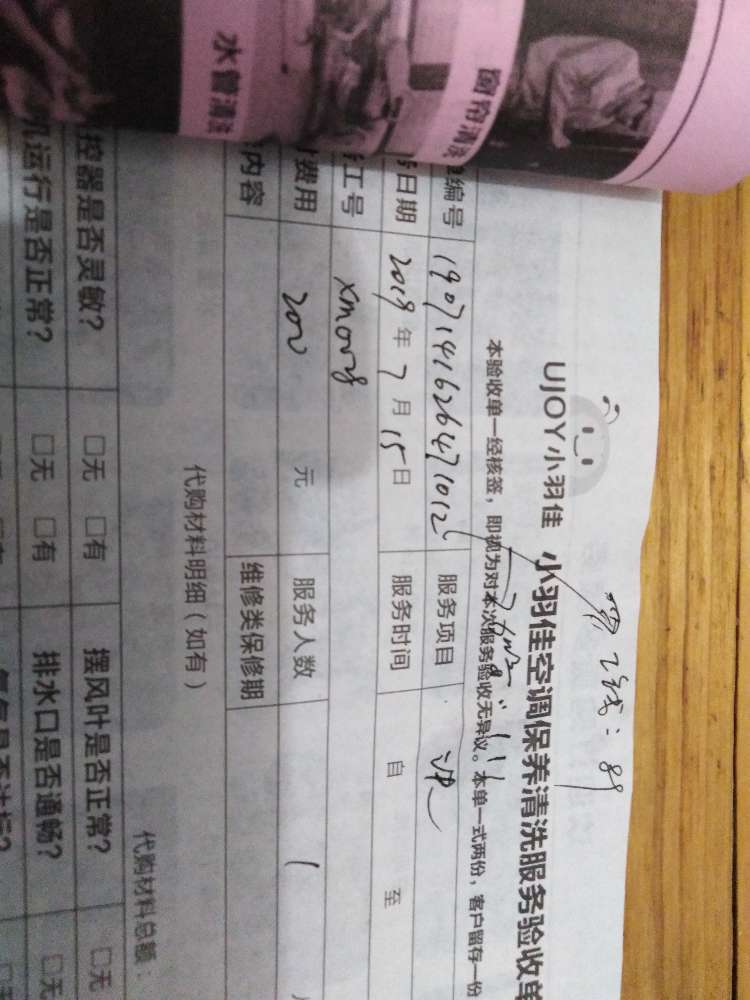 水管清洗
窗帘清洗
UJOY小羽佳 小羽佳空调保养清洗服务验收单
本验收单一经核签，即视为对本次服务验收无异议。本单一式两份，客户留存一份
编号 1907141626471012 服务项目
日期 2019年7月15日 服务时间 自 至
工号 xm0078
费用 200 元 服务人数 1
内容 维修类保修期
代购材料明细（如有）
代购材料总额：
控器是否灵敏？ □无 □有 摆风叶是否正常？ □无
机运行是否正常？ □无 □有 排水口是否通畅？ □无